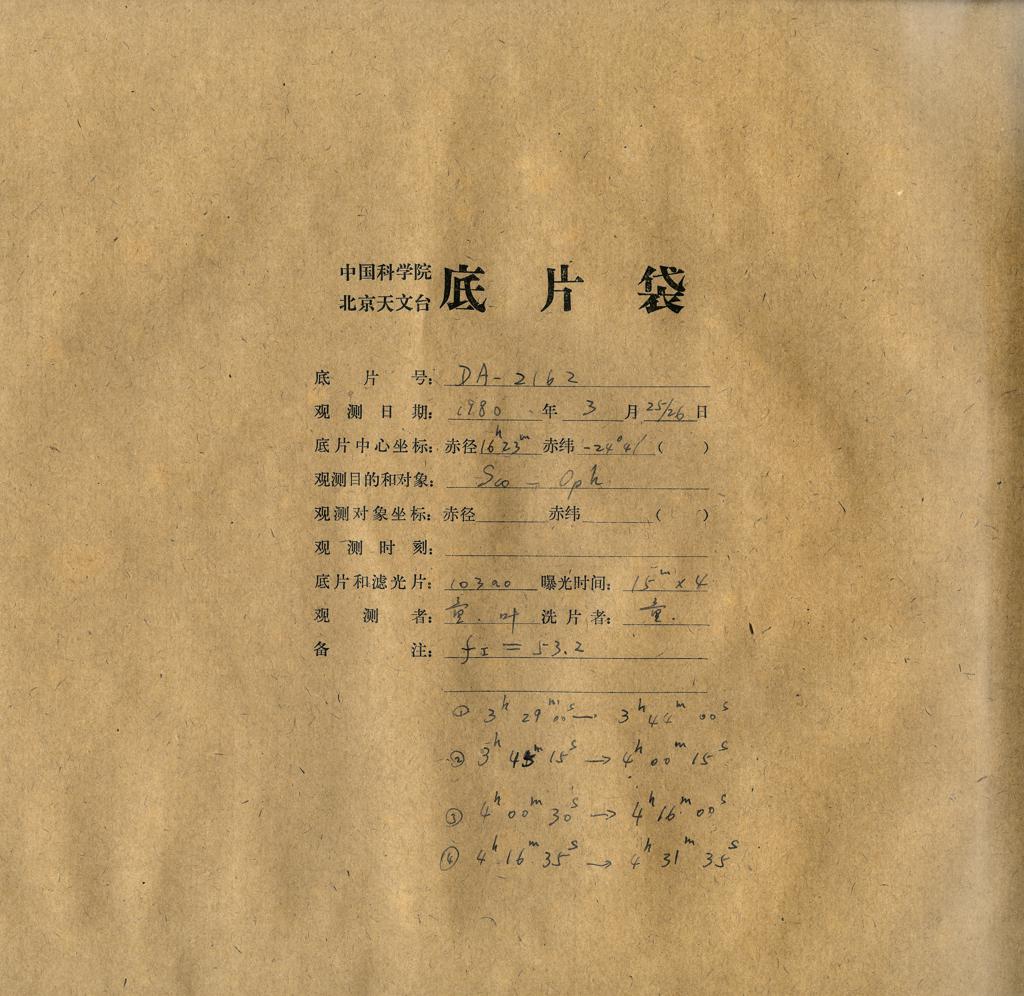 中国科学院
北京天文台
底片袋
底片号: DA-2162
观测日期: 1980年3月25/26日
底片中心坐标: 赤径16ʰ23ᵐ 赤纬-24°41′( )
观测目的和对象: Sco - Oph
观测对象坐标: 赤径 赤纬 ( )
观测时刻:
底片和滤光片: 103aO 曝光时间: 15ᵐ×4
观测者: 童.叶 洗片者: 童.
备注: fI = 53.2
① 3ʰ 29ᵐ 00ˢ — 3ʰ 44ᵐ 00ˢ
② 3ʰ 45ᵐ 15ˢ → 4ʰ 00ᵐ 15ˢ
③ 4ʰ 00ᵐ 30ˢ → 4ʰ 16ᵐ 00ˢ
④ 4ʰ 16ᵐ 35ˢ → 4ʰ 31ᵐ 35ˢ